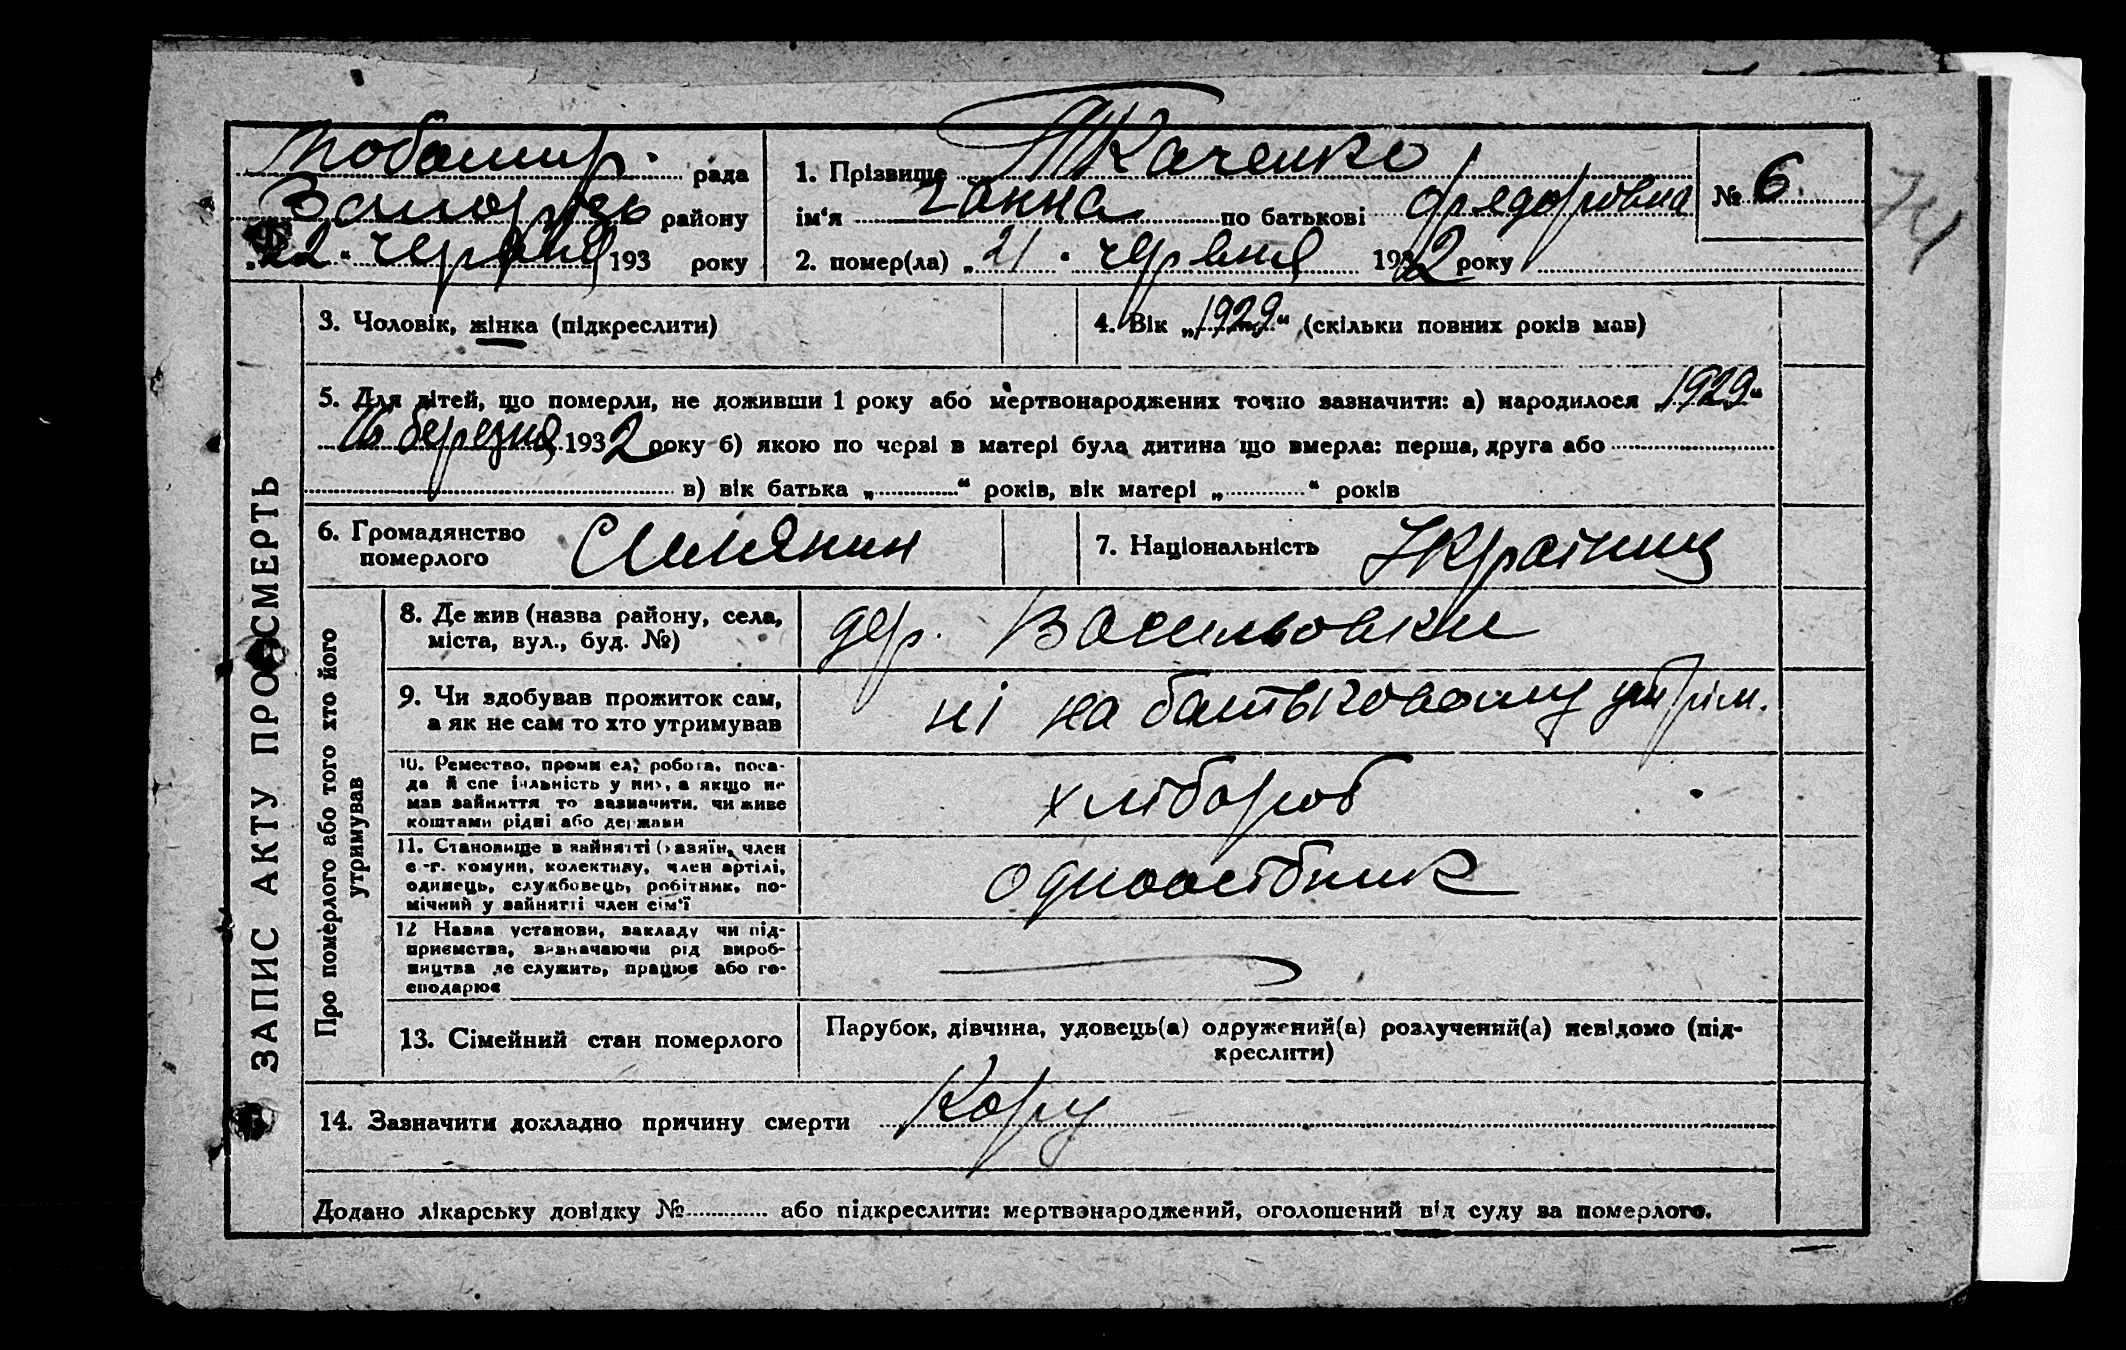 рада
Запорізь району
„22“ червня 193 року
1. Прізвище Ткаченко
ім'я Ганна по батькові Федоровна
2. помер(ла) „21“ червня 1932 року
№ 6
74
3. Чоловік, жінка (підкреслити)
4. Вік „1929“ (скільки повних років мав)
5. Для дітей, що померли, не доживши 1 року або мертвонароджених точно зазначити: а) народилося „1929“
16 березня 1932 року б) якою по черзі в матері була дитина що вмерла: перша, друга або
в) вік батька „ “ років, вік матері „ “ років
6. Громадянство
померлого
Силянин
7. Національність Українц
ЗАПИС АКТУ ПРО СМЕРТЬ
Про померлого або того хто його
утримував
8. Де жив (назва району, села,
міста, вул., буд. №)
дер. Васильовки
9. Чи здобував прожиток сам,
а як не сам то хто утримував
ні на батьковому утрім.
10. Ремество, промисел, робота, поса-
да й спеціяльність у них, а якщо не
мав зайняття то зазначити, чи живе
коштами рідні або держави
хлібороб
11. Становище в зайнятті (хазяїн, член
с.-г. комуни, колективу, член артілі,
одинець, службовець, робітник, по-
мічний у зайнятті член сім'ї
одноосібник
12 Назва установи, закладу чи під-
приємства, зазначаючи рід вироб-
ництва де служить, працює або го-
сподарює
13. Сімейний стан померлого
Парубок, дівчина, удовець(а) одружений(а) розлучений(а) невідомо (під-
креслити)
14. Зазначити докладно причину смерти Кору
Додано лікарську довідку № або підкреслити: мертвонароджений, оголошений від суду за померлого.